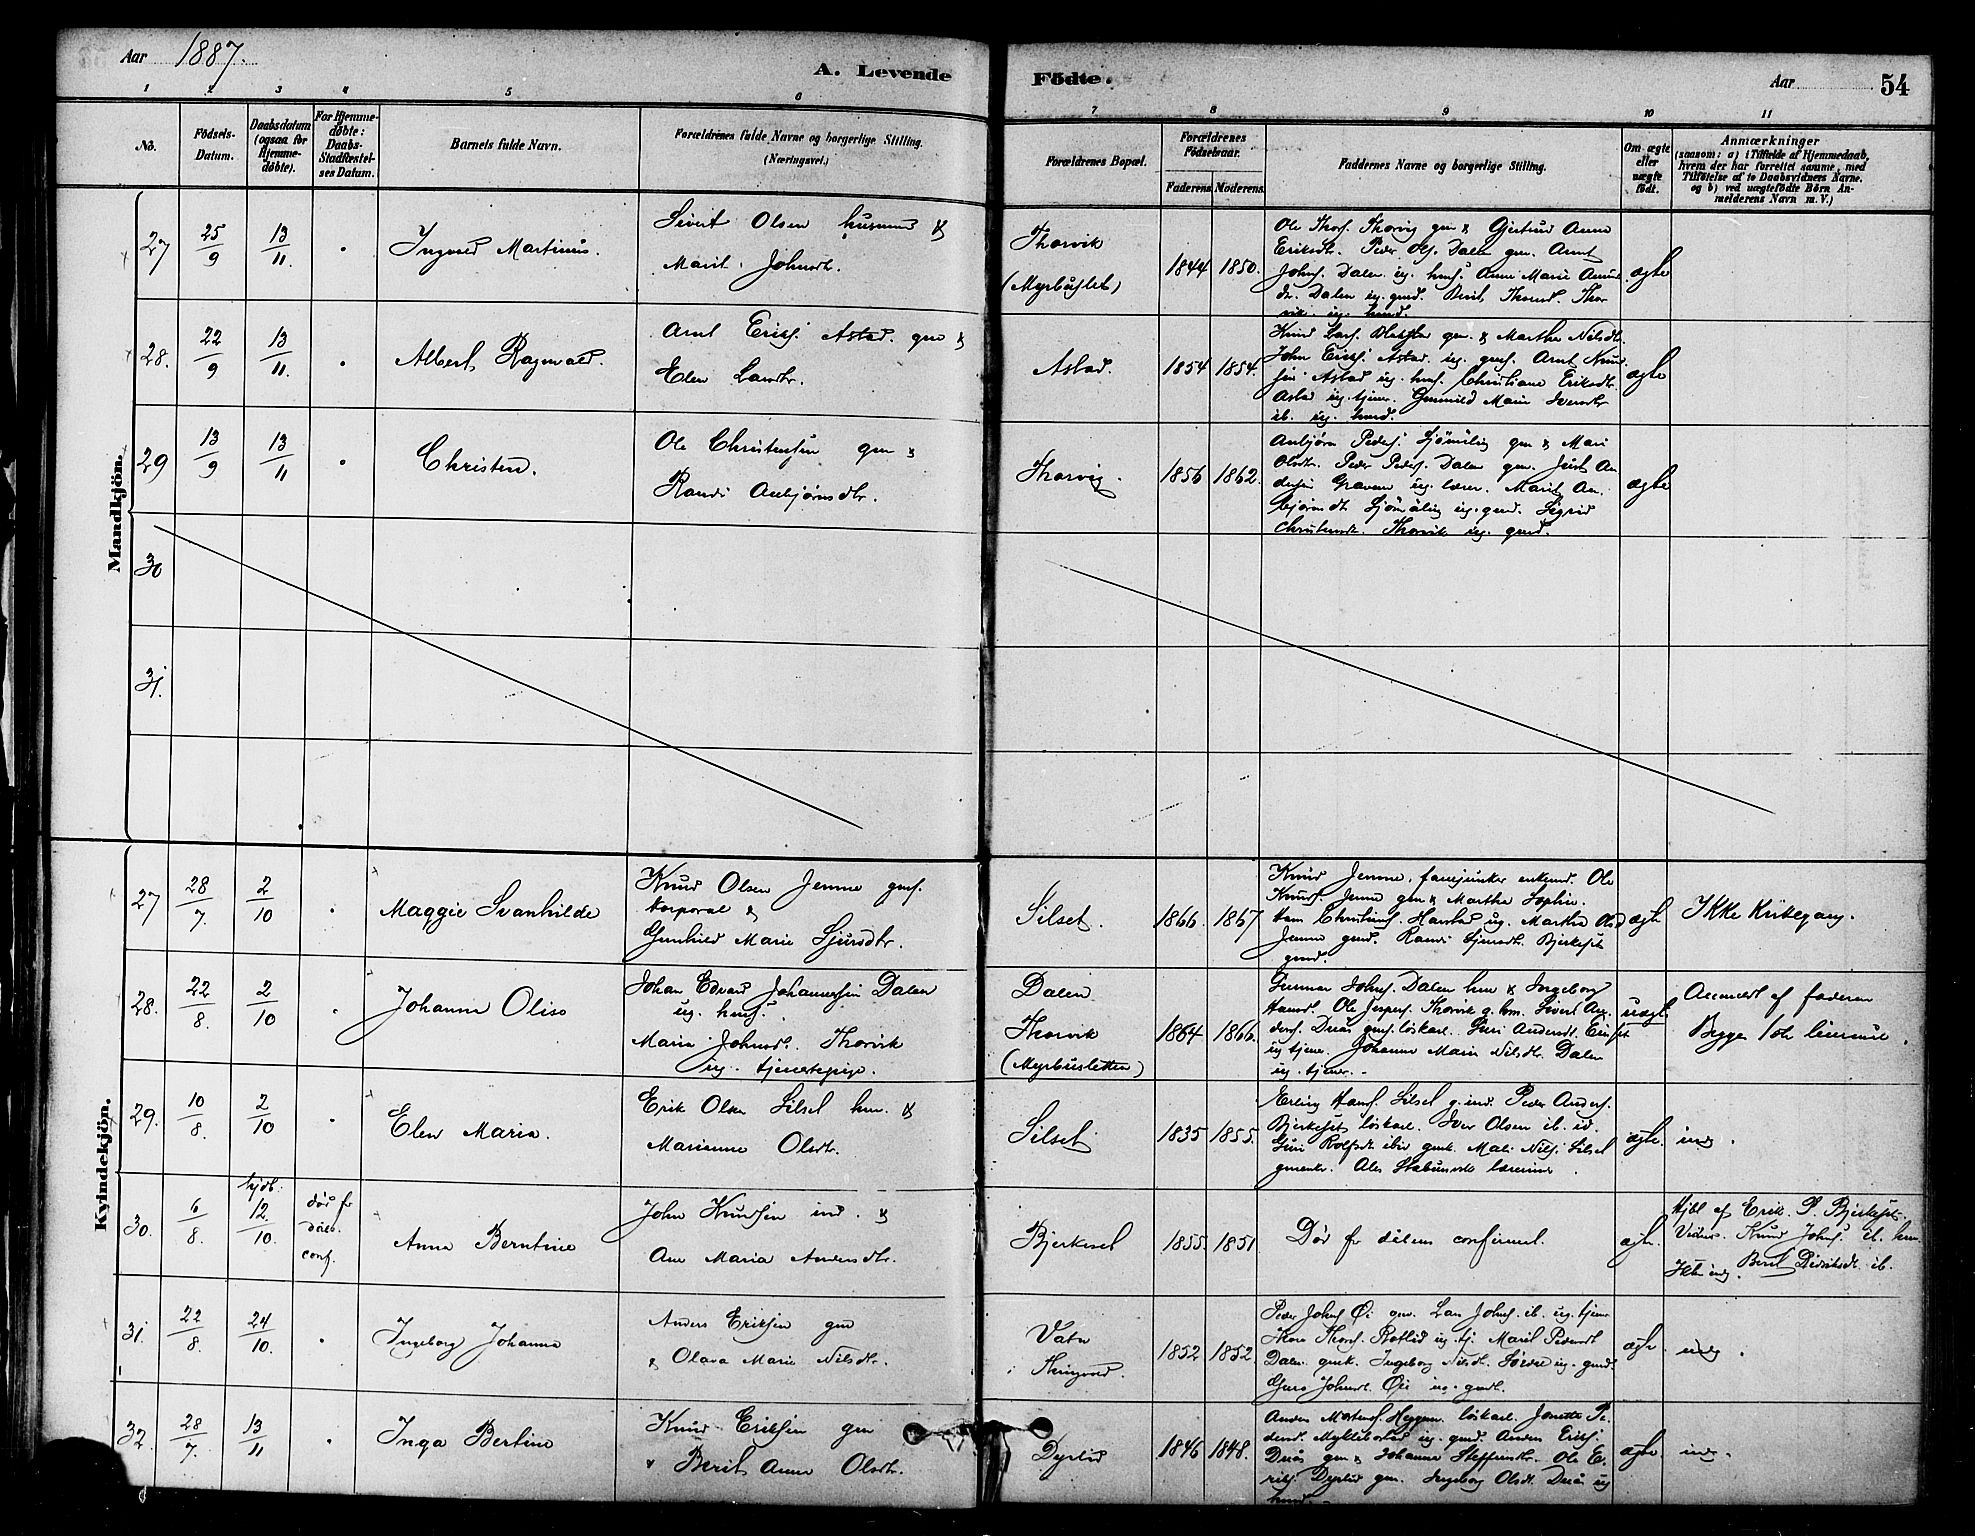 Aar 1887.
A. Levende Födte.
Aar 54
1 2 3 4 5 6 7 8 9 10 11
No.
Födsels-Datum.
Daabsdatum (ogsaa for Hjemme-döbte).
For Hjemme-døbte: Daabs-Stadfæstel-ses Datum.
Barnets fulde Navn.
Forældrenes fulde Navne og borgerlige Stilling. (Næringsvei.)
Forældrenes Bopæl.
Forældrenes Födselsaar.
Faderens. Moderens.
Faddernes Navne og borgerlige Stilling.
Om ægte eller uægte födt.
Anmærkninger
(saasom: a) i Tilfælde af Hjemmedaab,
hvem der har forrettet samme, med
Tilföielse af to Daabsvidners Navne.
og b) ved uægtefödte Börn An-
melderens Navn m. V.)
Mandkjön.
27 25/9 13/11 Ingvald Martinus.
Sivert Olsen husmd &
Marit Johnsdt.
Thorvik
(Myrbuslet)
1844 1850.
Ole Thors. Thorvig gm & Gjertrud Anne
Eriksdt. Peder Ols. Dalen gm. Arnt
Johns. Dalen ug. hmf. Anne Marie
Dalen ug. gmd. Berit Thorsd. Thor
vik ug. hmd.
ægte
28. 22/9 13/11 Albert Ragnvald.
Arnt Erikss. Astad. gm &
Elen Larsdtr.
Astad.
1854 1854.
Knud Lars. gm. & Marthe Nilsdt.
John Erikss. Astad. ug. gmf. Arnt Knud
sen Astad ug. hmf. Christiane Eriksdt.
Astad ug. tjener. Gunnild Marie Iversdtr
ib. ug. hmd.
ægte
29 13/9 13/11 Christen.
Ole Christensen gm &
Randi Anbjørnsdtr.
Thorvig.
1856 1862.
Anbjørn Peders. Sjömælig gm & Mari
Olsdtr. Peder Peders. Dalen gm. Just An
dersen Graven ug. lærer. Marit An
björnsdt. Sjömælig ug. gmd. Sigrid
Christensdt. Thorvik ug. gmd.
ægte
30
31.
Kvindekjön.
27 28/7 2/10 Maggie Svanhilde
Knud Olsen Jenne gmf.
Korporal &
Gunhild Marie Sjursdtr.
Silset.
1866. 1867
Knud Jenne, fanejunker enkemd. Ole
Knuds. Jenne gm & Marthe Sophie.
Christians. Harstad ug. Marthe Olsd
Jenne gmd. Randi Sjursdt. Bjerkeset
gmd.
ægte
Ikke Kirkegang.
28. 22/8. 2/10 Johanna Oliso
Johan Edvard Johannessen Dalen
ug. hmf.
Maria Johnsdt. Thorvik
ug. tjenestepige.
Dalen
Thorvik
(Myrbusletten)
1864 1866.
Gunnar Johns. Dalen hm & Ingeborg
Hansd. Ole Jespers. Thorvik g. hm. Sivert An
ders. Duås gmf. löskarl. Guri Andersdt. Einset
ug tjener. Johanne Marie Nilsdt. Dalen
ug. tjener.
uægt
Anmeldt af faderen
Begges 1ste leiermaal.
29. 10/8. 2/10 Elen Maria.
Erik Olsen Silset hm. &
Marianne Olsdtr.
Silset.
1835 1855.
Erling Hans. Silset g. ind. Peder Anders.
Bjerkeset löskarl. Iver Olsen ib. id.
Guri Rolfsdt ibid gmk. Mali Nils. Silset
gmenke. Ales lærerinde.
ægte.
indg.
30. 6/8. hjdb. 12/10. död fr daab. conf. Anna Berntine
John Knudsen ind. &
Ane Maria Andersdtr.
Bjerkeset
1855. 1851
Död för daaben confirmert.
ægte.
Hjdbt af Erik P. Bjerkeset.
Vidner. Knud Johns. ib. hm.
Beret Didriksdt. ib.
Ikke indg.
31 22/8. 24/10. Ingeborg Johanna
Anders Eriksen gm
& Olava Marie Nilsdtr.
Vatn
Thingvold.
1852 1852.
Peder Johns. Öi gm. Lars Johns. ib. ug. tjener
Thors. Botlid ug. tj. Marit Pedersdt
Dalen gmk. Ingeborg Nilsdt. ug. gmd.
Guro Johnsdt. Öii ug. gmd.
ægte.
indg.
32. 28/7. 13/11 Inga Bertine
Knud Eriksen gm
& Berit Anne Olsdtr.
Dyrlid
1846 1848.
Anders Mortens. Heggem löskarl. Jonette Pe
dersd. Myklebostad ug. gmd. Anders Eriks.
Duås gm & Johanne Steffensdt. Ole E
riks. Dyrlid gm. Ingeborg Olsdt. Duås ug
hmd.
ægte.
indg.